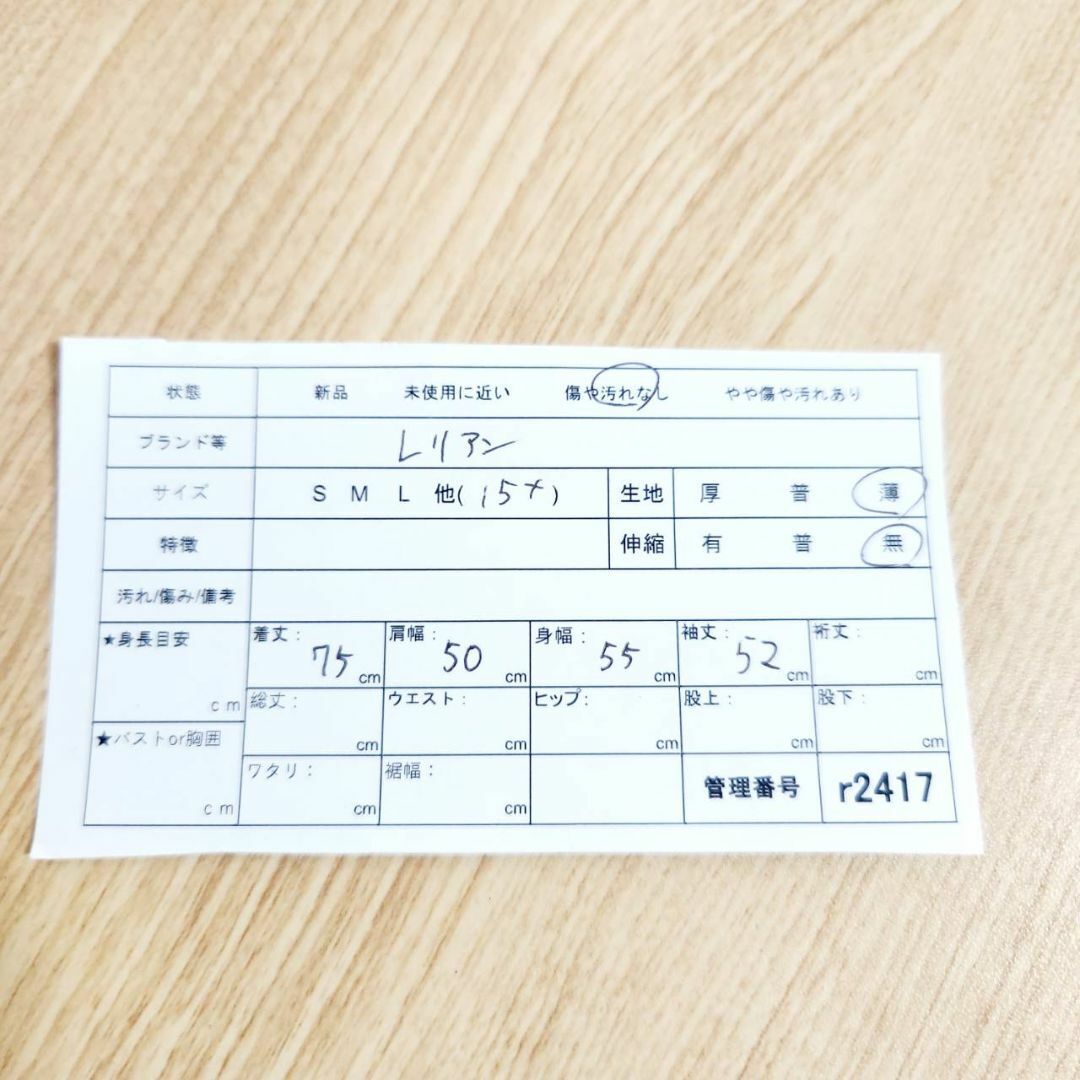 状態 新品 未使用に近い 傷や汚れなし やや傷や汚れあり
ブランド等 レリアン
サイズ S M L 他(15+) 生地 厚 普 薄
特徴 伸縮 有 普 無
汚れ/傷み/備考
★身長目安 cm 着丈: 75 cm 肩幅: 50 cm 身幅: 55 cm 袖丈: 52 cm 裄丈: cm
総丈: cm ウエスト: cm ヒップ: cm 股上: cm 股下: cm
★バストor胸囲 cm ワタリ: cm 裾幅: cm 管理番号 r2417